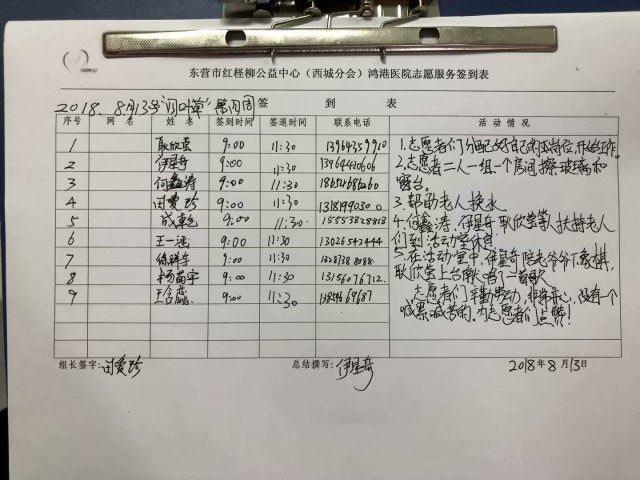 东营市红柽柳公益中心（西城分会）鸿港医院志愿服务签到表
2018.8月13号"四叶草"慰问团 签 到 表
序号 网 名 姓 名 签到时间 签退时间 联系电话 活 动 情 况
1 耿欣莹 9:00 11:30
2 伊星奇 9:00 11:30
3 何鑫涛 9:00 11:30
4 闵爱珍 9:00 11:30
5 成乾 9:00 11:30 15553828818
6 王一涵 9:00 11:30
7 9:00 11:30
8 杨苗宇 9:00 11:30
9 9:00 11:30
1.志愿者们分配好自己的岗位,开始工作。
2.志愿者二人一组一个房间擦玻璃和
窗台。
3.帮助老人换水
4.何鑫涛、伊星奇、耿欣莹等人扶持老人
们到活动室休息
5.在活动室中,伊星奇陪老爷爷下象棋,
耿欣莹上台献唱了一首歌
志愿者们辛勤劳动,非常开心,没有一个
喊累喊苦的,为志愿者们点赞!
组长签字: 闵爱珍 总结撰写: 伊星奇 2018年8月13日